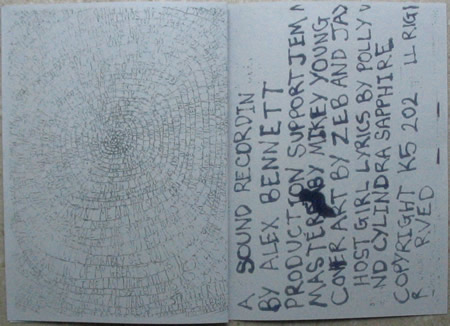 A SOUND RECORDIN
BY ALEX BENNETT
PRODUCTION SUPPORT JEM
MASTERED BY MIKEY YOUNG
COVER ART BY ZEB AND
HOST GIRL LYRICS BY POLLY
ND CYLINDRA SAPPHIRE
COPYRIGHT K5 202 LL RIGH
R RVED